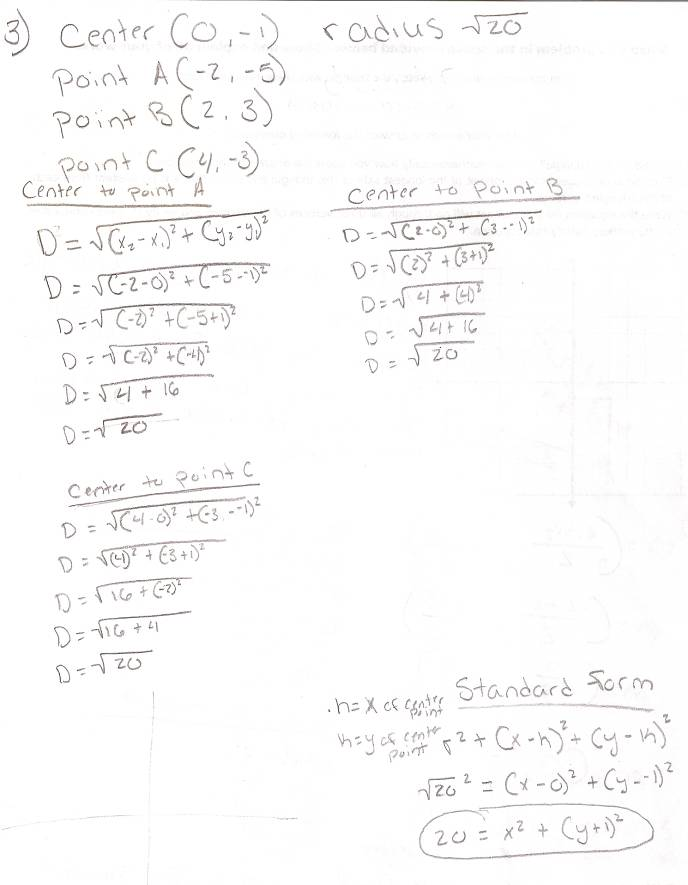 3) Center (0,-1) radius √20
Point A (-2,-5)
Point B (2,3)
Point C (4,-3)
Center to point A
D = √(x₂-x₁)²+(y₂-y₁)²
D = √(-2-0)²+(-5--1)²
D = √(-2)²+(-5+1)²
D = √(-2)²+(-4)²
D = √4+16
D = √20
Center to Point B
D = √(2-0)²+(3--1)²
D = √(2)²+(3+1)²
D = √4+(4)²
D = √4+16
D = √20
Center to point C
D = √(4-0)²+(-3--1)²
D = √(4)²+(-3+1)²
D = √16+(-2)²
D = √16+4
D = √20
Standard Form
h=x of center point
k=y of center point
r²+(x-h)²+(y-k)²
√20² = (x-0)²+(y--1)²
20 = x²+(y+1)²